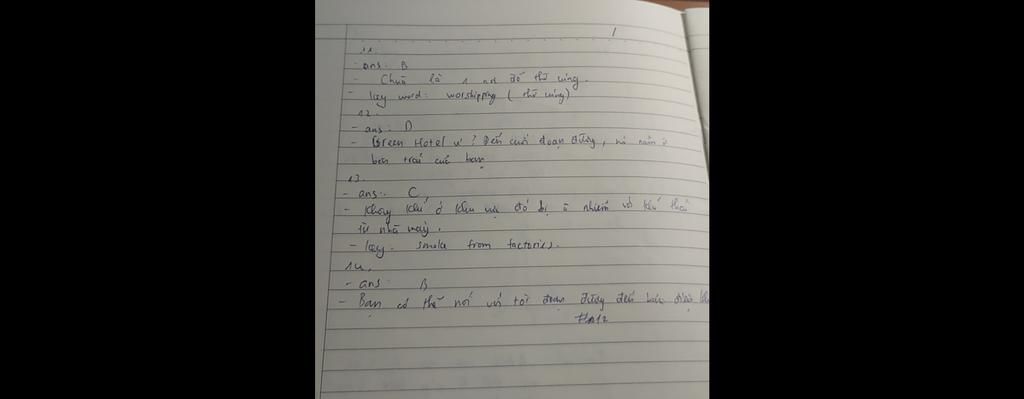 1
11.
- ans: B
- Chùa là 1 nơi để thờ cúng.
- key word: worshipping ( thờ cúng)
12.
- ans: D
- Green Hotel ư? Đến cuối đoạn đường, nó nằm ở
bên trái của bạn
13.
- ans: C,
- Không khí ở khu vực đó bị ô nhiễm với khí thải
từ nhà máy.
- key: smoke from factories.
14.
- ans: B
- Bạn có thể nói với tôi đoạn đường đến bưu điện